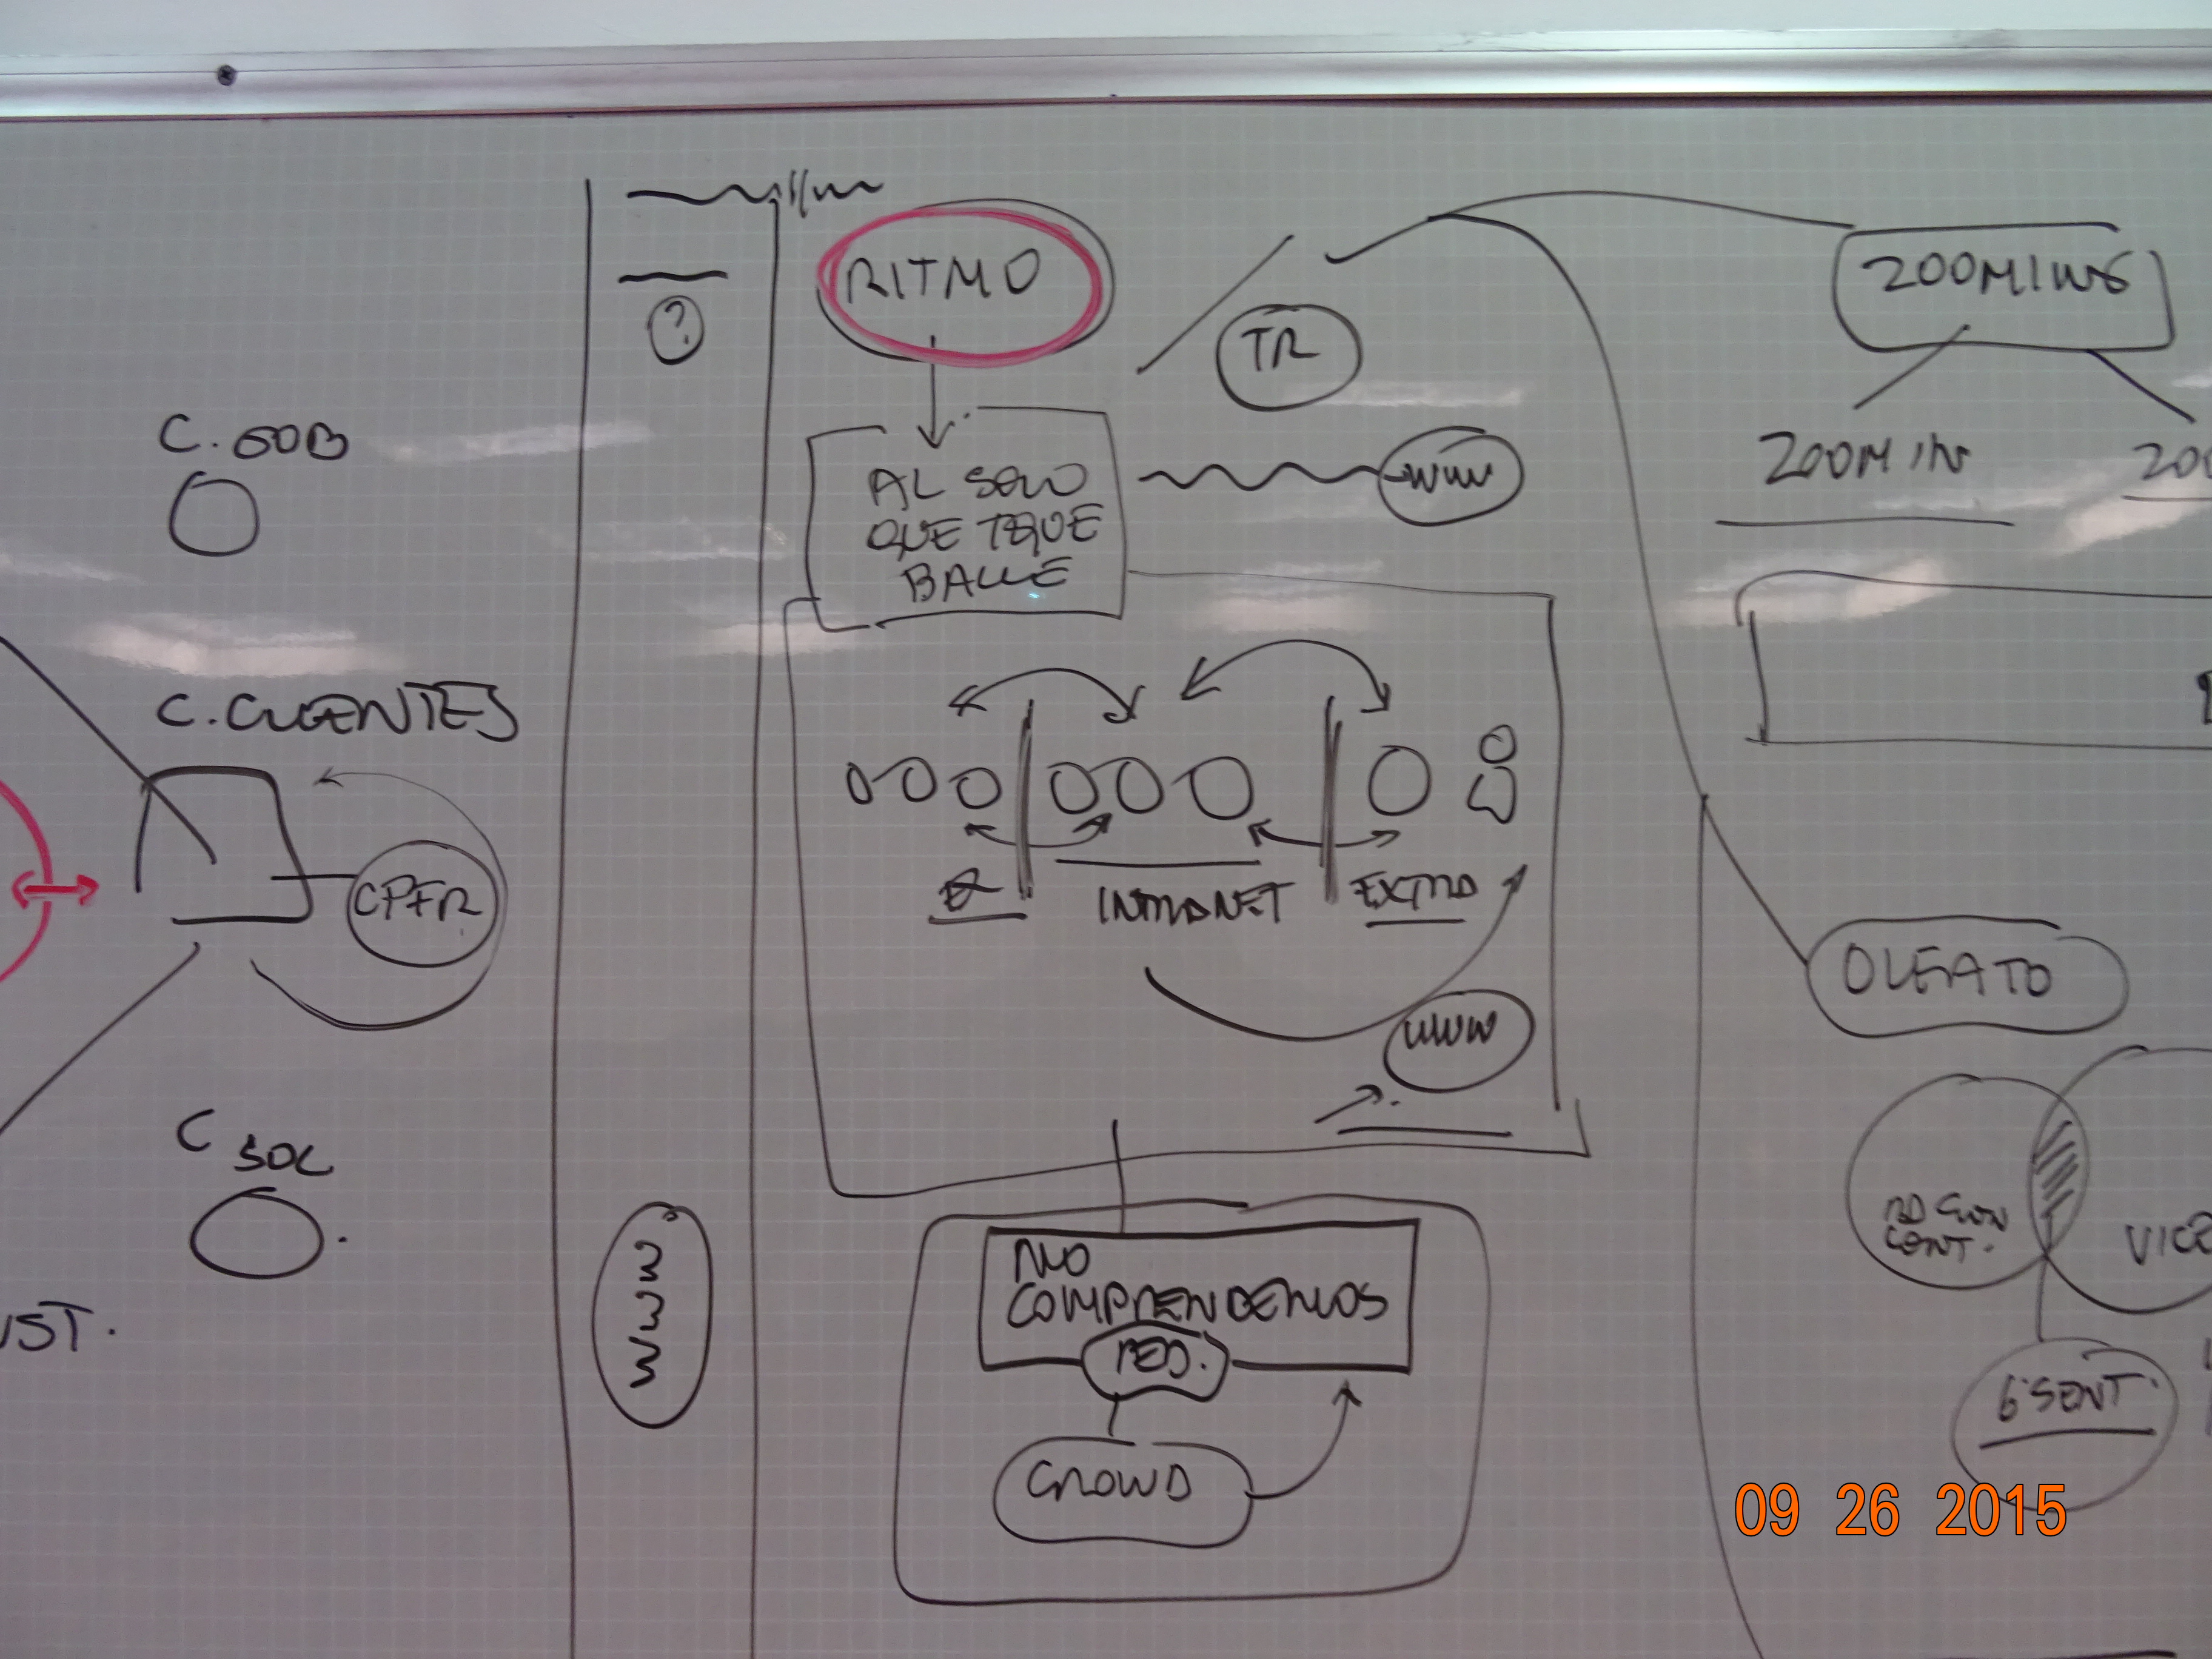 C. GOB
C. CLIENTES
CPFR
C SOL
UST.
?
WWW
RITMO
AL SON
QUE TOQUE
BAILE
TR
WWW
INTRANET
EXTRA
WWW
NO
COMPRENDEMOS
CROWD
ZOOMING
ZOOM IN
ZOO
OLFATO
CONT.
VICE
6 SENT.
09 26 2015